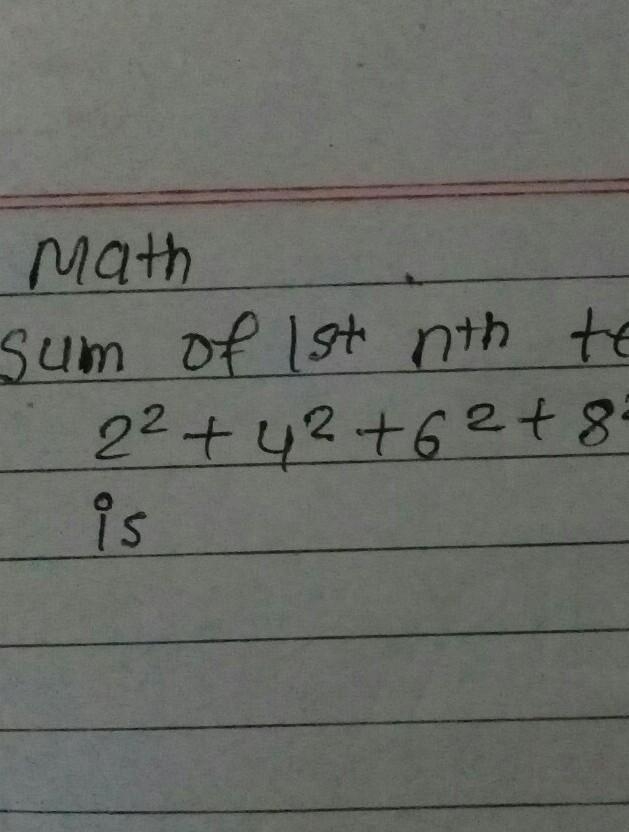 Math
Sum of 1st nth te
2² + 4² + 6² + 8²
is